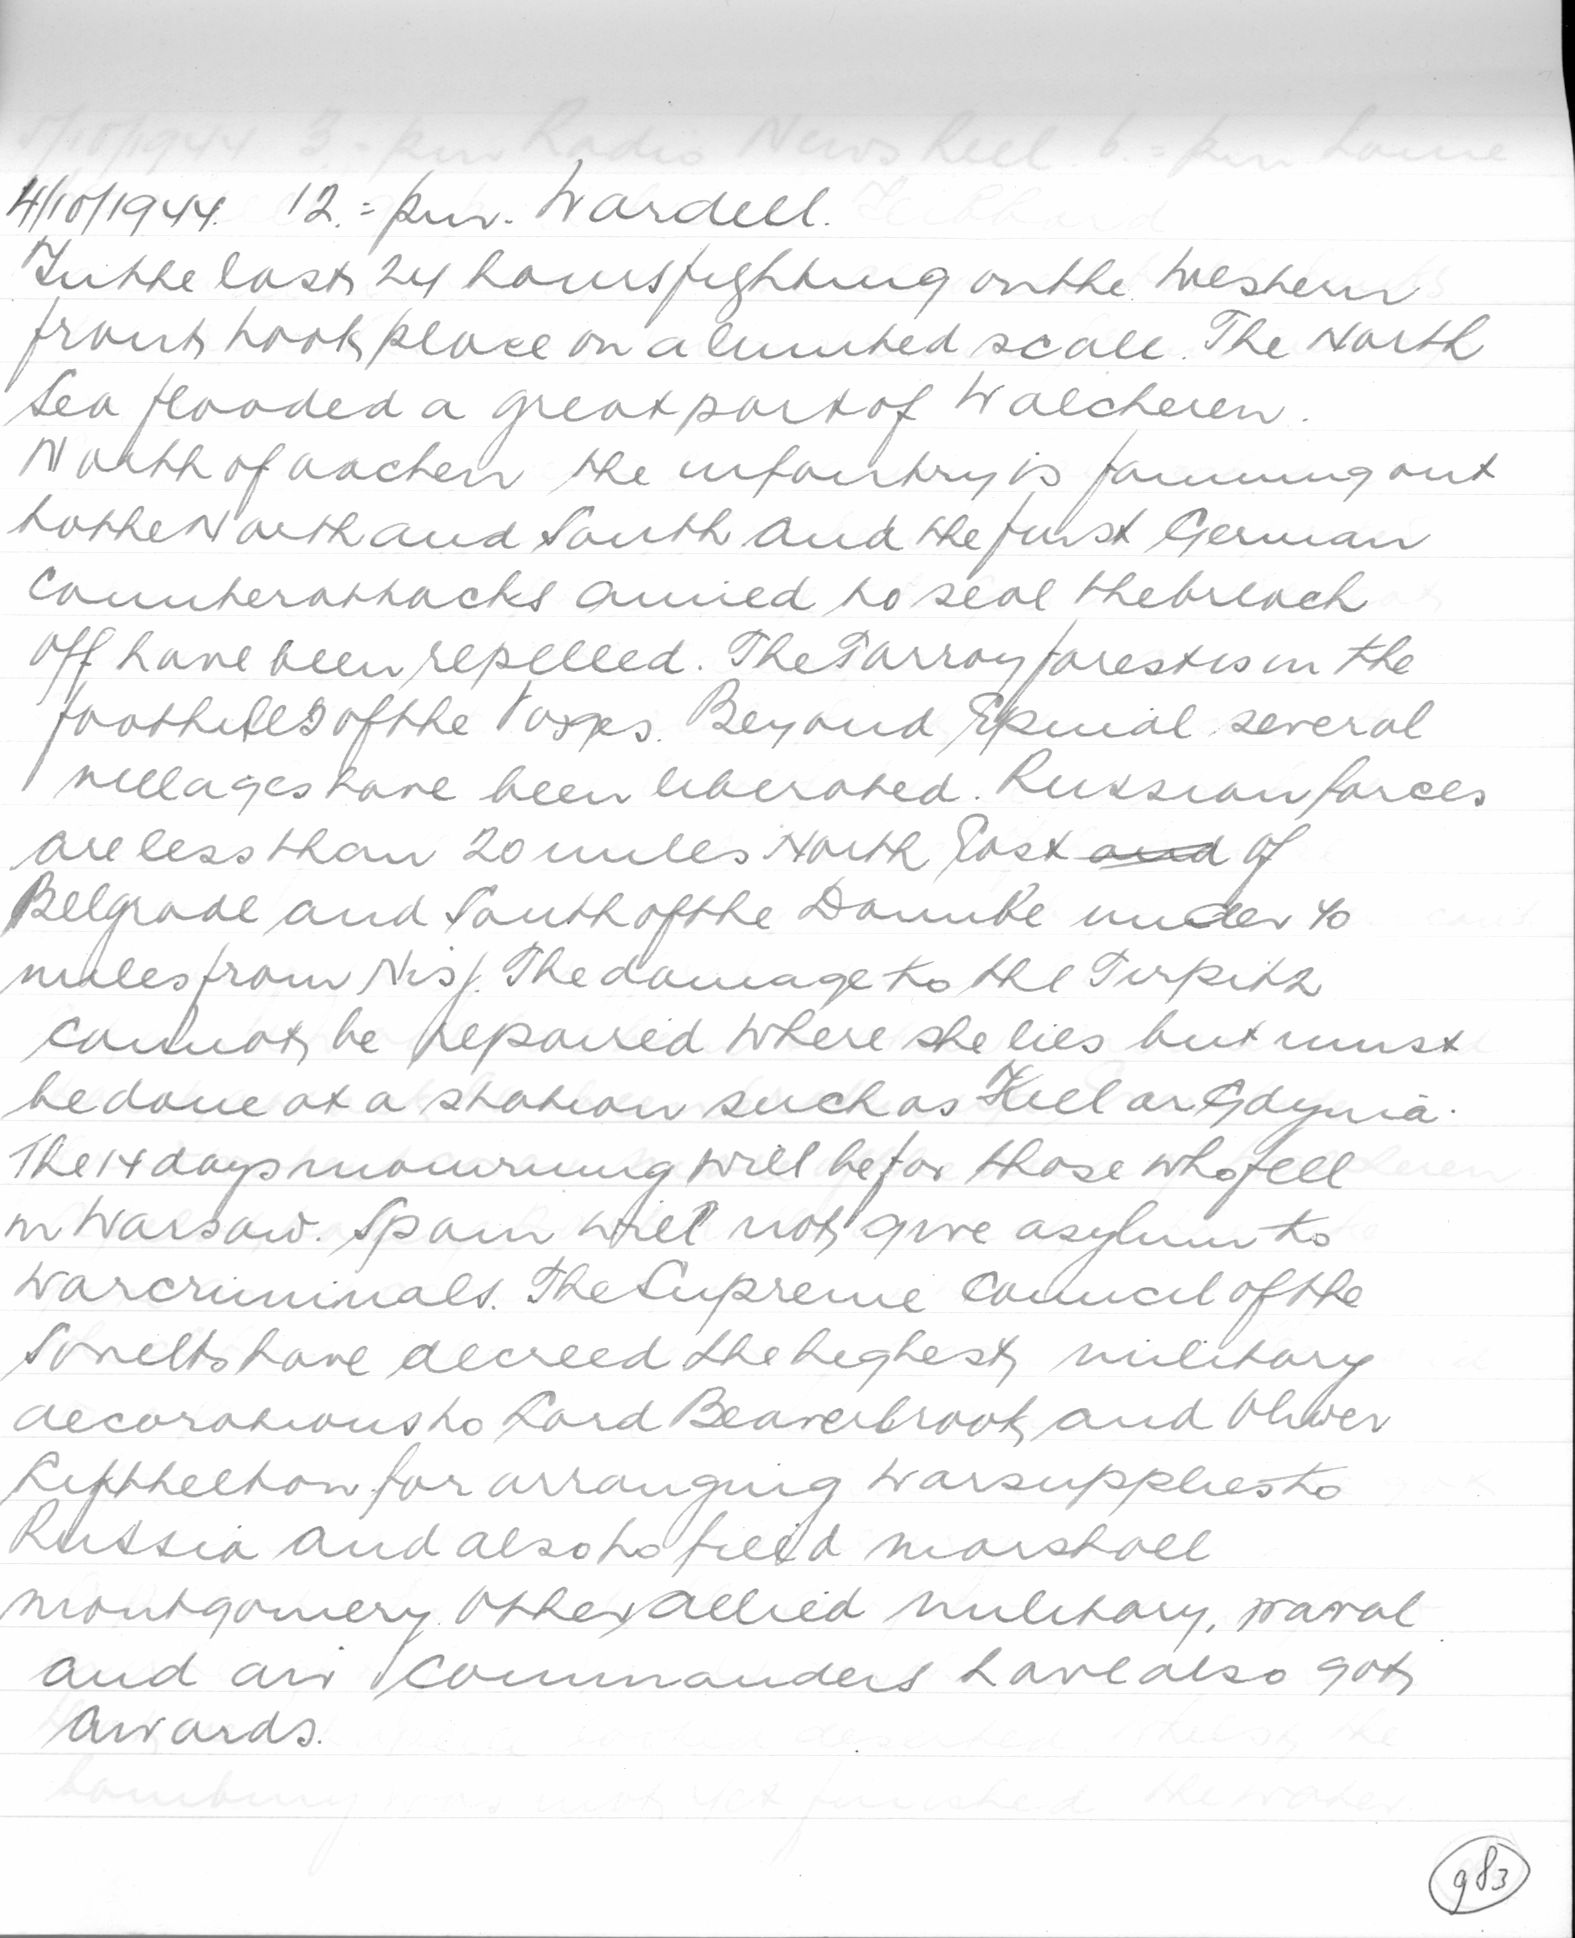 4/10/1944. 12.= pm. Wardell.
In the last 24 hours fighting on the Western
front took place on a limited scale. The North
Sea flooded a great part of Walcheren.
North of aachen the infantry is fanning out
to the North and South and the first German
Counterattacks aimed to seal the breach
off have been repelled. The Parroy forest is in the
foothills of the Voges. Beyond Epinal several
villages have been liberated. Russian forces
are less than 20 miles North East and of
Belgrade and South of the Danube under 40
miles from Nisj. The damage to the Tirpitz
cannot be repaired where she lies but must
be done at a station such as Kiel or Gdynia.
The 14 days mourning will be for those who fell
in Warsaw. Spain will not give asylum to
warcriminals. The Supreme Council of the
Soviets have decreed the highest military
decorations to Lord Beaverbrook and Oliver
Lifttleton for arranging warsupplies to
Russia and also to field marshall
montgomery. Other allied military, naval
and air commanders have also got
awards.
983